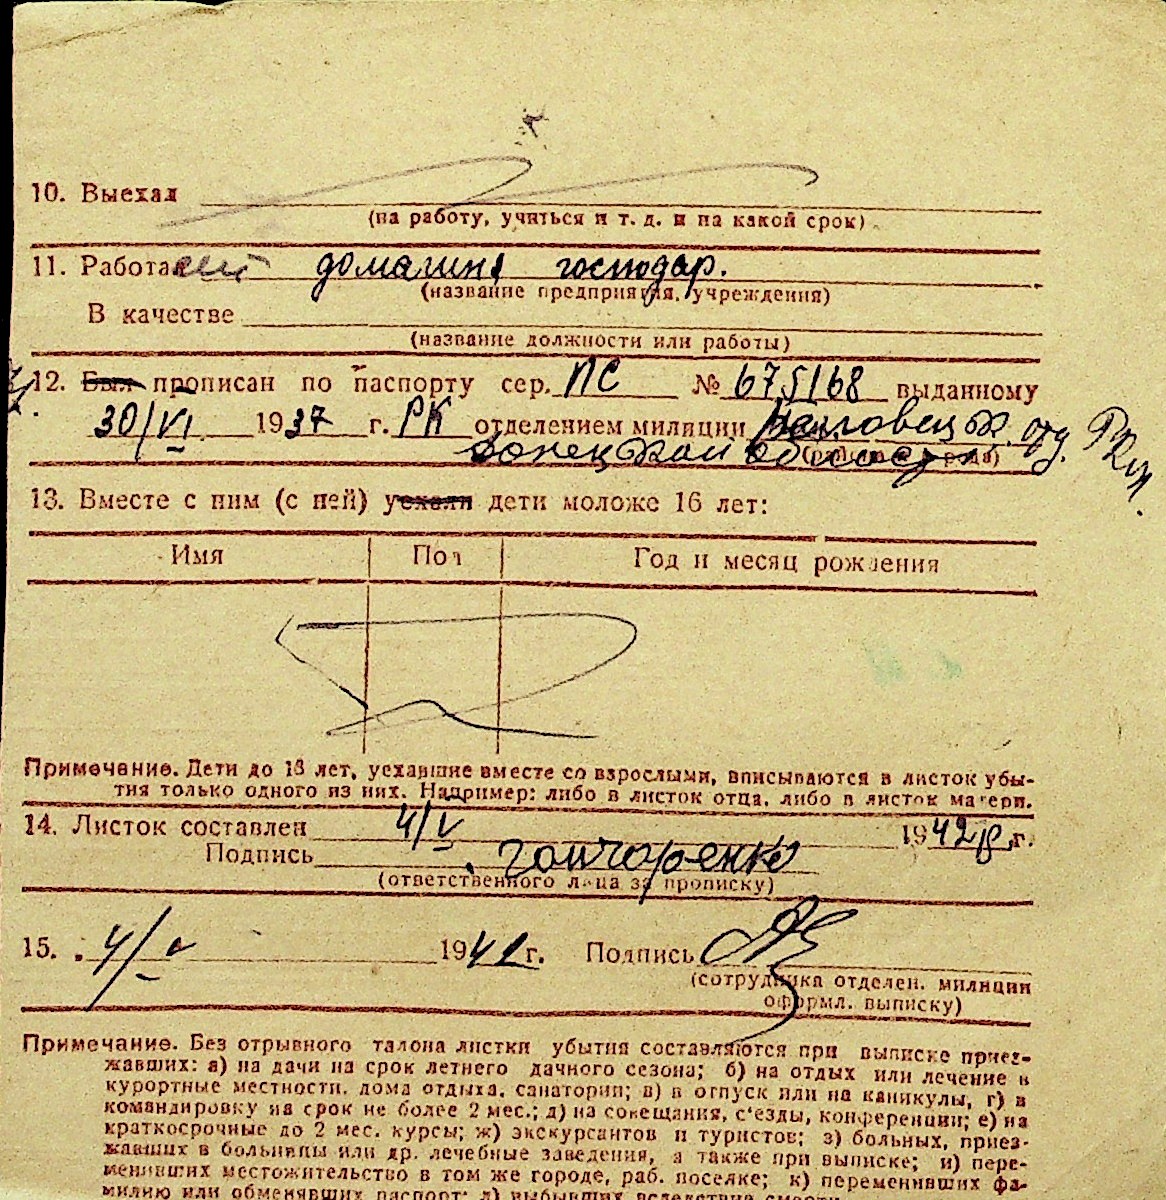 10. Выехал
(на работу, учиться и т. д. и на какой срок)
11. Работа домашня господар.
(название предприятия, учреждения)
В качестве
(название должности или работы)
12. Был прописан по паспорту сер. ПС № 675168 выданному
30/VI 1937 г. РК отделением милиции
донецкой области
13. Вместе с ним (с ней) уехали дети моложе 16 лет:
Имя Пол Год и месяц рождения
Примечание. Дети до 16 лет, уехавшие вместе со взрослыми, вписываются в листок убы-
тия только одного из них. Например: либо в листок отца, либо в листок матери.
14. Листок составлен 4/V 1942 р. г.
Подпись гончаренко
(ответственного лица за прописку)
15. 4/V 1942 г. Подпись
(сотрудника отделен. милиции
оформл. выписку)
Примечание. Без отрывного талона листки убытия составляются при выписке приез-
жавших: а) на дачи на срок летнего дачного сезона; б) на отдых или лечение в
курортные местности, дома отдыха, санатории; в) в отпуск или на каникулы, г) в
командировку на срок не более 2 мес.; д) на совещания, с'езды, конференции; е) на
краткосрочные до 2 мес. курсы; ж) экскурсантов и туристов; з) больных, приез-
жавших в больницы или др. лечебные заведения, а также при выписке; и) пере-
менивших местожительство в том же городе, раб. поселке; к) переменивших фа-
милию или обменявших паспорт; л) выбывших вследствие смерти.